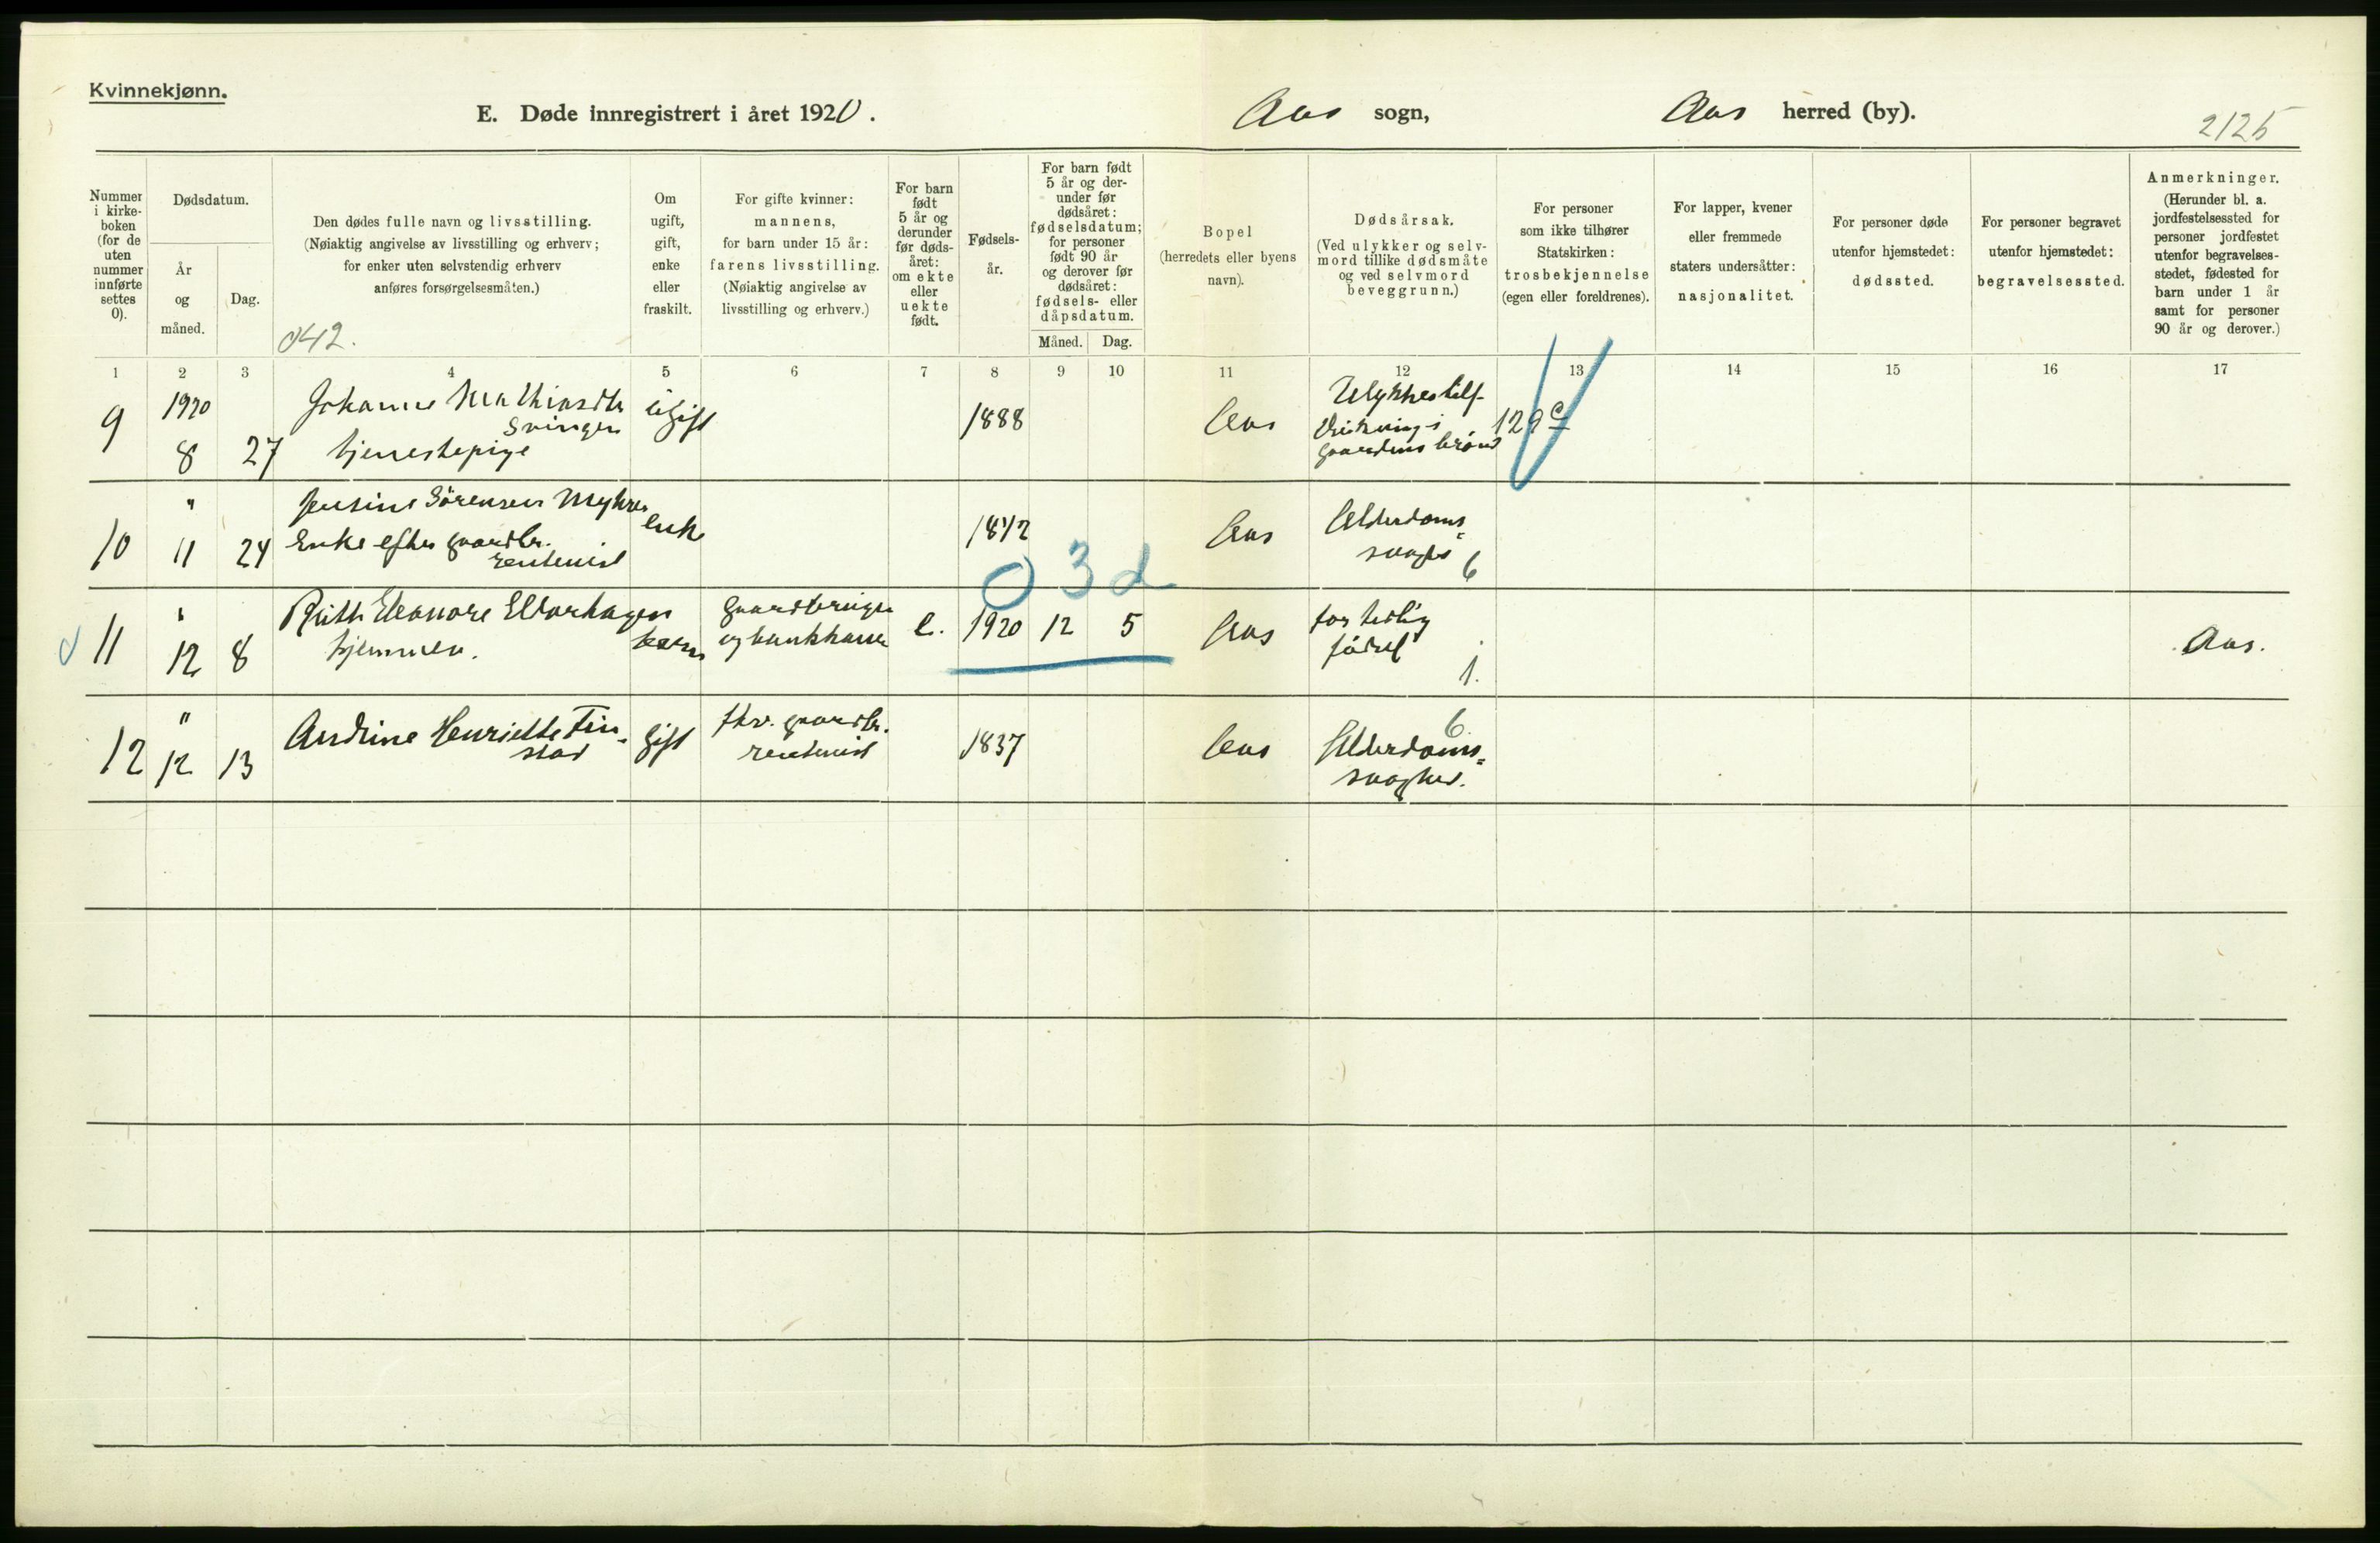 Kvinnekjønn.
E. Døde innregistrert i året 1920.
Aas sogn,
Aas herred (by).
2125
Nummer i kirkeboken (for de uten nummer innførte settes 0).
Dødsdatum.
År og måned.
Dag.
Den dødes fulle navn og livsstilling.
(Nøiaktig angivelse av livsstilling og erhverv;
for enker uten selvstendig erhverv
anføres forsørgelsesmåten.)
042.
Om ugift, gift, enke eller fraskilt.
For gifte kvinner:
mannens,
for barn under 15 år:
farens livsstilling.
(Nøiaktig angivelse av
livsstilling og erhverv.)
For barn født 5 år og derunder før dødsåret: om ekte eller uekte født.
Fødselsår.
For barn født 5 år og derunder før dødsåret: fødselsdatum; for personer født 90 år og derover før dødsåret: fødsels- eller dåpsdatum.
Måned. Dag.
Bopel
(herredets eller byens
navn).
Dødsårsak.
(Ved ulykker og selv-
mord tillike dødsmåte
og ved selvmord
beveggrunn.)
For personer
som ikke tilhører
Statskirken:
trosbekjennelse
(egen eller foreldrenes).
For lapper, kvener
eller fremmede
staters undersåtter:
nasjonalitet.
For personer døde
utenfor hjemstedet:
dødssted.
For personer begravet
utenfor hjemstedet:
begravelsessted.
Anmerkninger.
(Herunder bl. a.
jordfestelsessted for
personer jordfestet
utenfor begravelses-
stedet, fødested for
barn under 1 år
samt for personer
90 år og derover.)
1 2 3 4 5 6 7 8 9 10 11 12 13 14 15 16 17
9 1920 8 27 Johanne Mathiasdtr
Svingen
tjenestepige
ugift 1888 Aas Ulykkestilf.
Drukning i
gaardens brønd
129 c
10 " 11 24 Jensine Sørensen Myhrer
Enke efter gaardbr.
rentenist
enke Aas Alderdoms=
6
0 3 d
11 " 12 8 Ruth Eleonore
hjemme.
barn gaardbruger
og
e. 1920 12 5 Aas for tidlig
født
1.
Aas.
12 " 12 13 Andrine Henriette Fin-
stad
gift fhv. gaardbr.
rentenist
1837 Aas 6
Alderdoms=
svaghed.